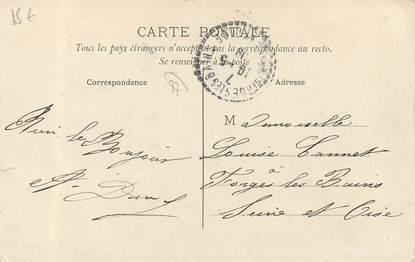 15 €
CARTE POSTALE
Tous les pays étrangers n'acceptent pas la correspondance au recto.
Se renseigner à la poste
Correspondance
Adresse
Bien le
Bonjour
M ademoiselle
Louise Cannet
à
Forges les Bains
Seine et Oise